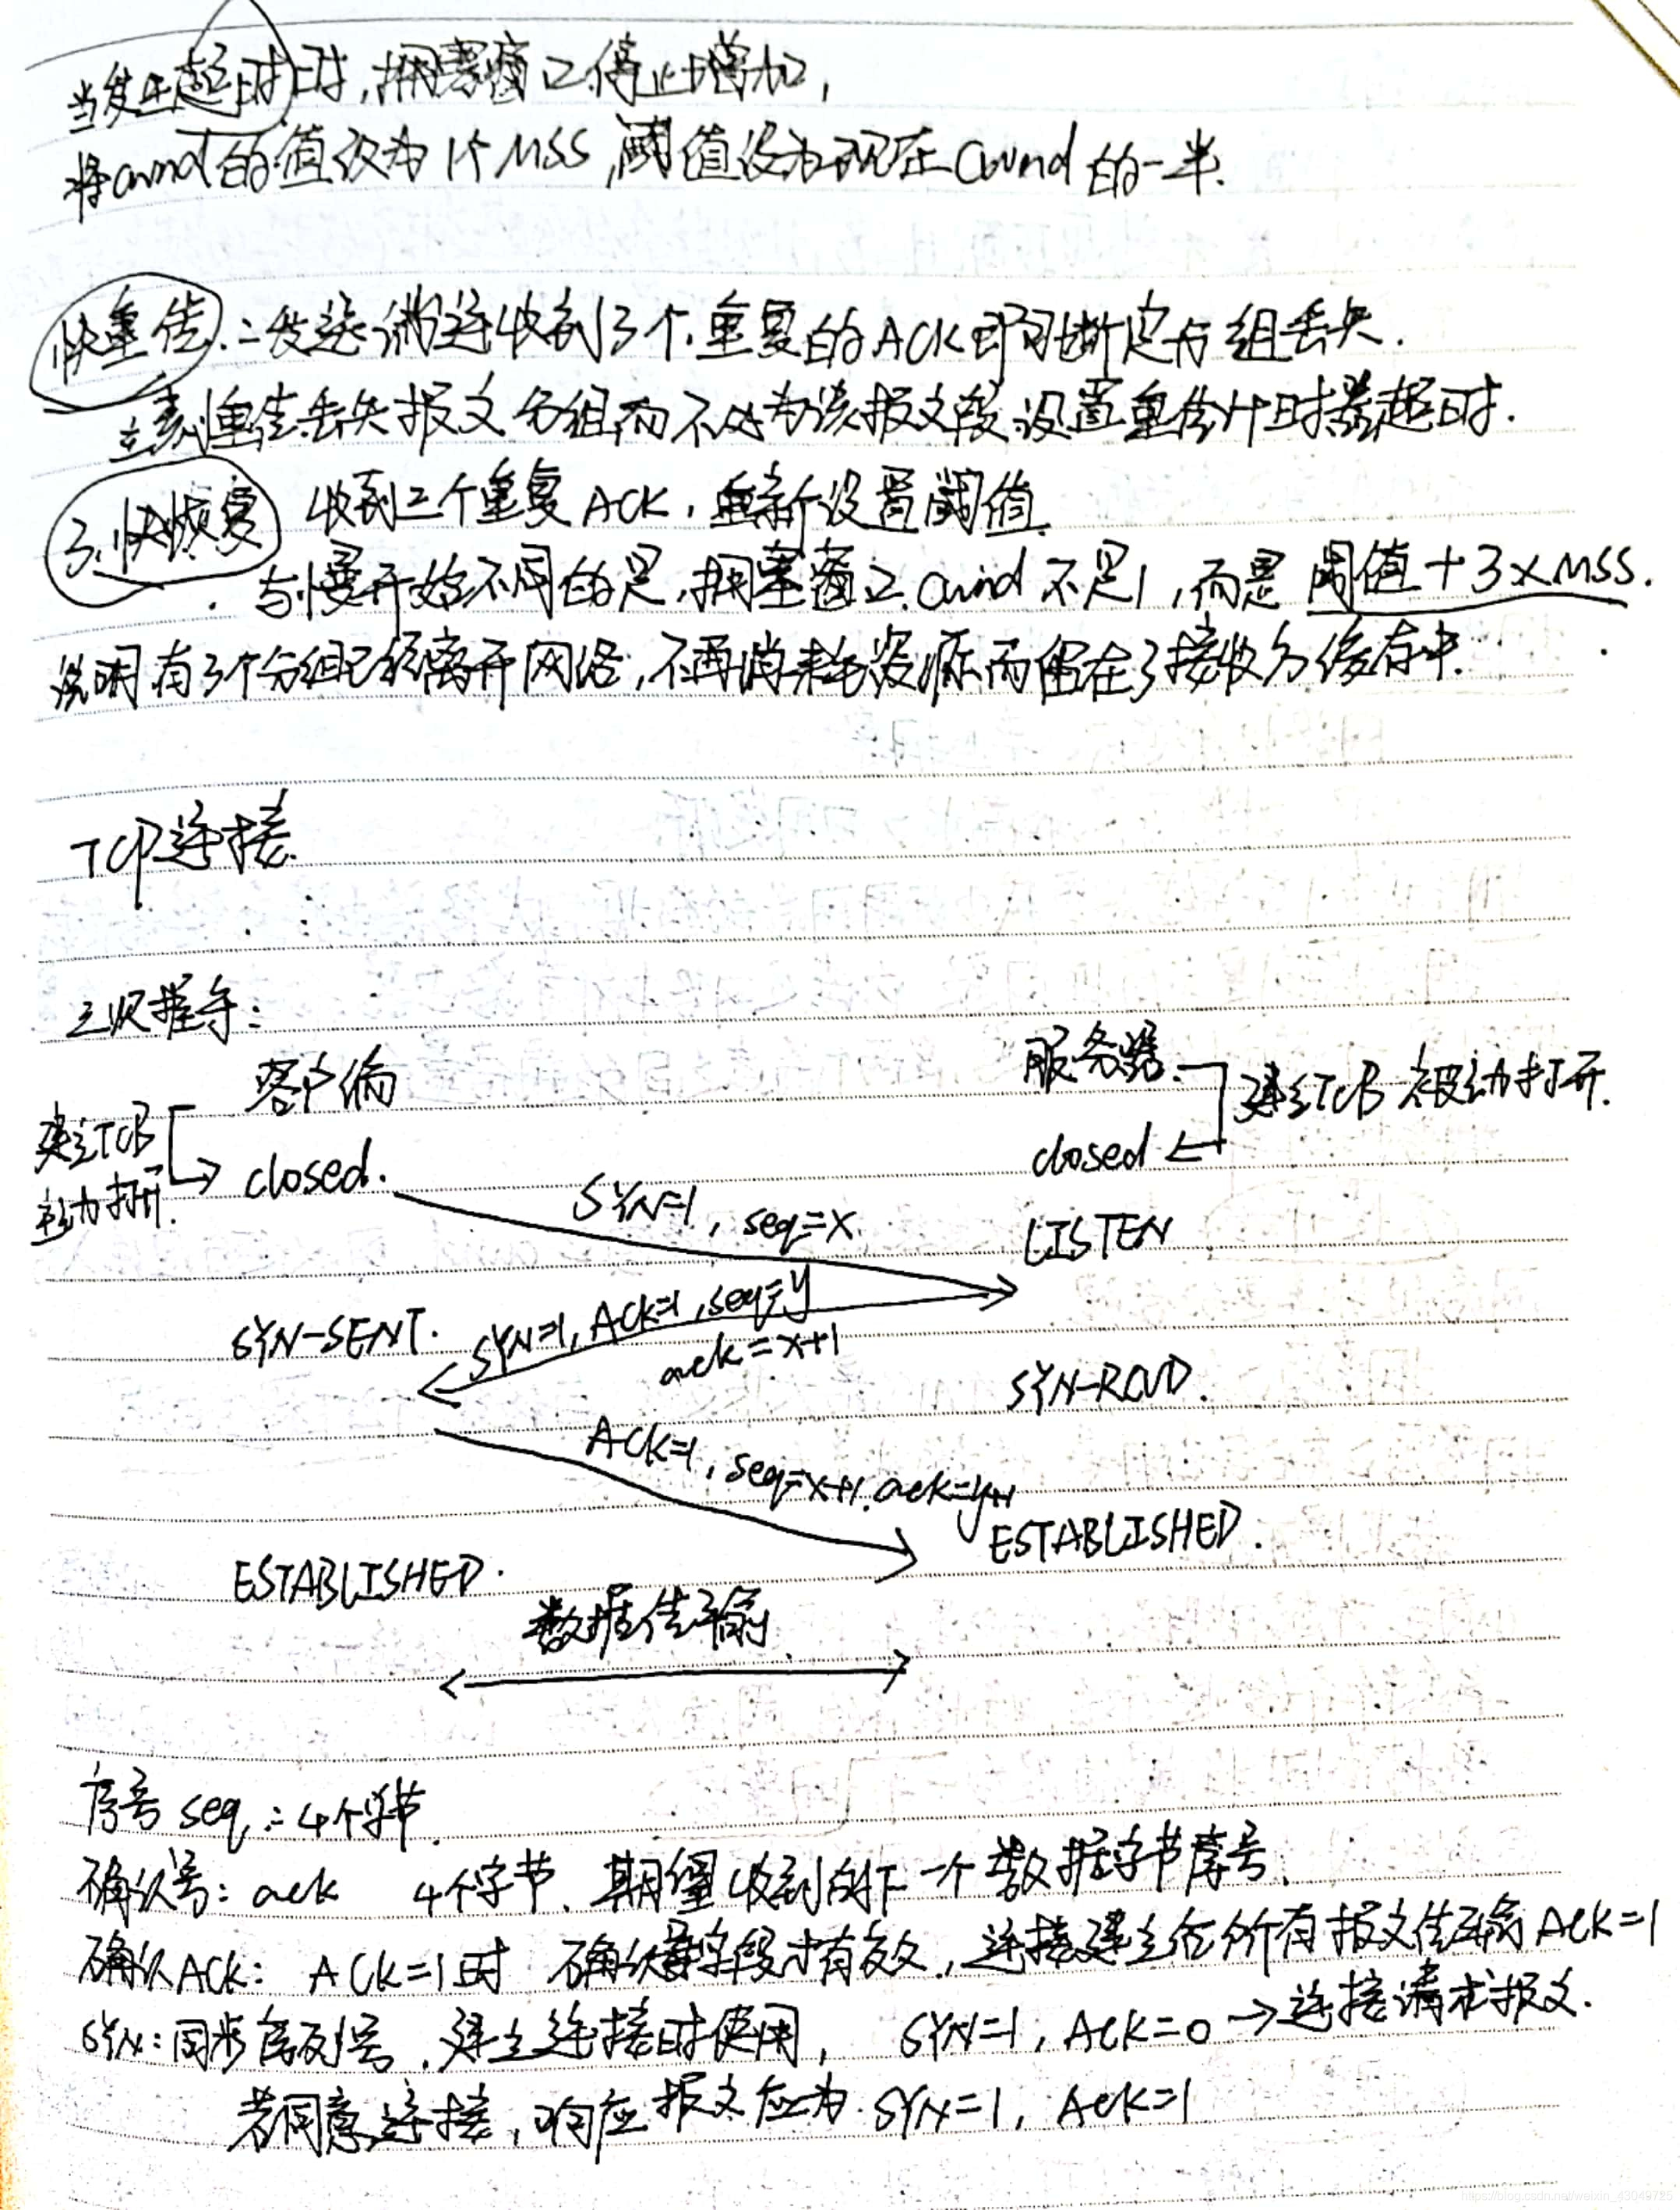 当发生超时时,拥塞窗口停止增加,
将cwnd的值设为1个MSS,阈值设为现在cwnd的一半.
快重传:一发送端连收到3个重复的ACK即可断定分组丢失.
立刻重传丢失报文分组而不必为该报文段设置重传计时器超时.
3.快恢复 收到三个重复ACK.重新设置阈值.
与慢开始不同的是,拥塞窗口cwnd不是1,而是阈值+3×MSS.
说明有3个分组已经离开网络,不再消耗资源而留在了接收方缓存中.
TCP连接.
三次握手:
客户端 服务器
建立TCB 主动打开.
建立TCB 被动打开.
closed. closed
SYN=1, seq=x
LISTEN
SYN-SENT.
SYN=1, ACK=1, seq=y
ack=x+1
SYN-RCVD.
ACK=1, seq=x+1, ack=y+1
ESTABLISHED.
ESTABLISHED.
数据传输
序号seq:4个字节.
确认号:ack 4个字节.期望收到的下一个数据字节序号.
确认ACK: ACK=1时 确认号字段才有效,连接建立后所有报文传输ACK=1
SYN:同步序列号.建立连接时使用, SYN=1, ACK=0→连接请求报文.
若同意连接,响应报文应为SYN=1, ACK=1